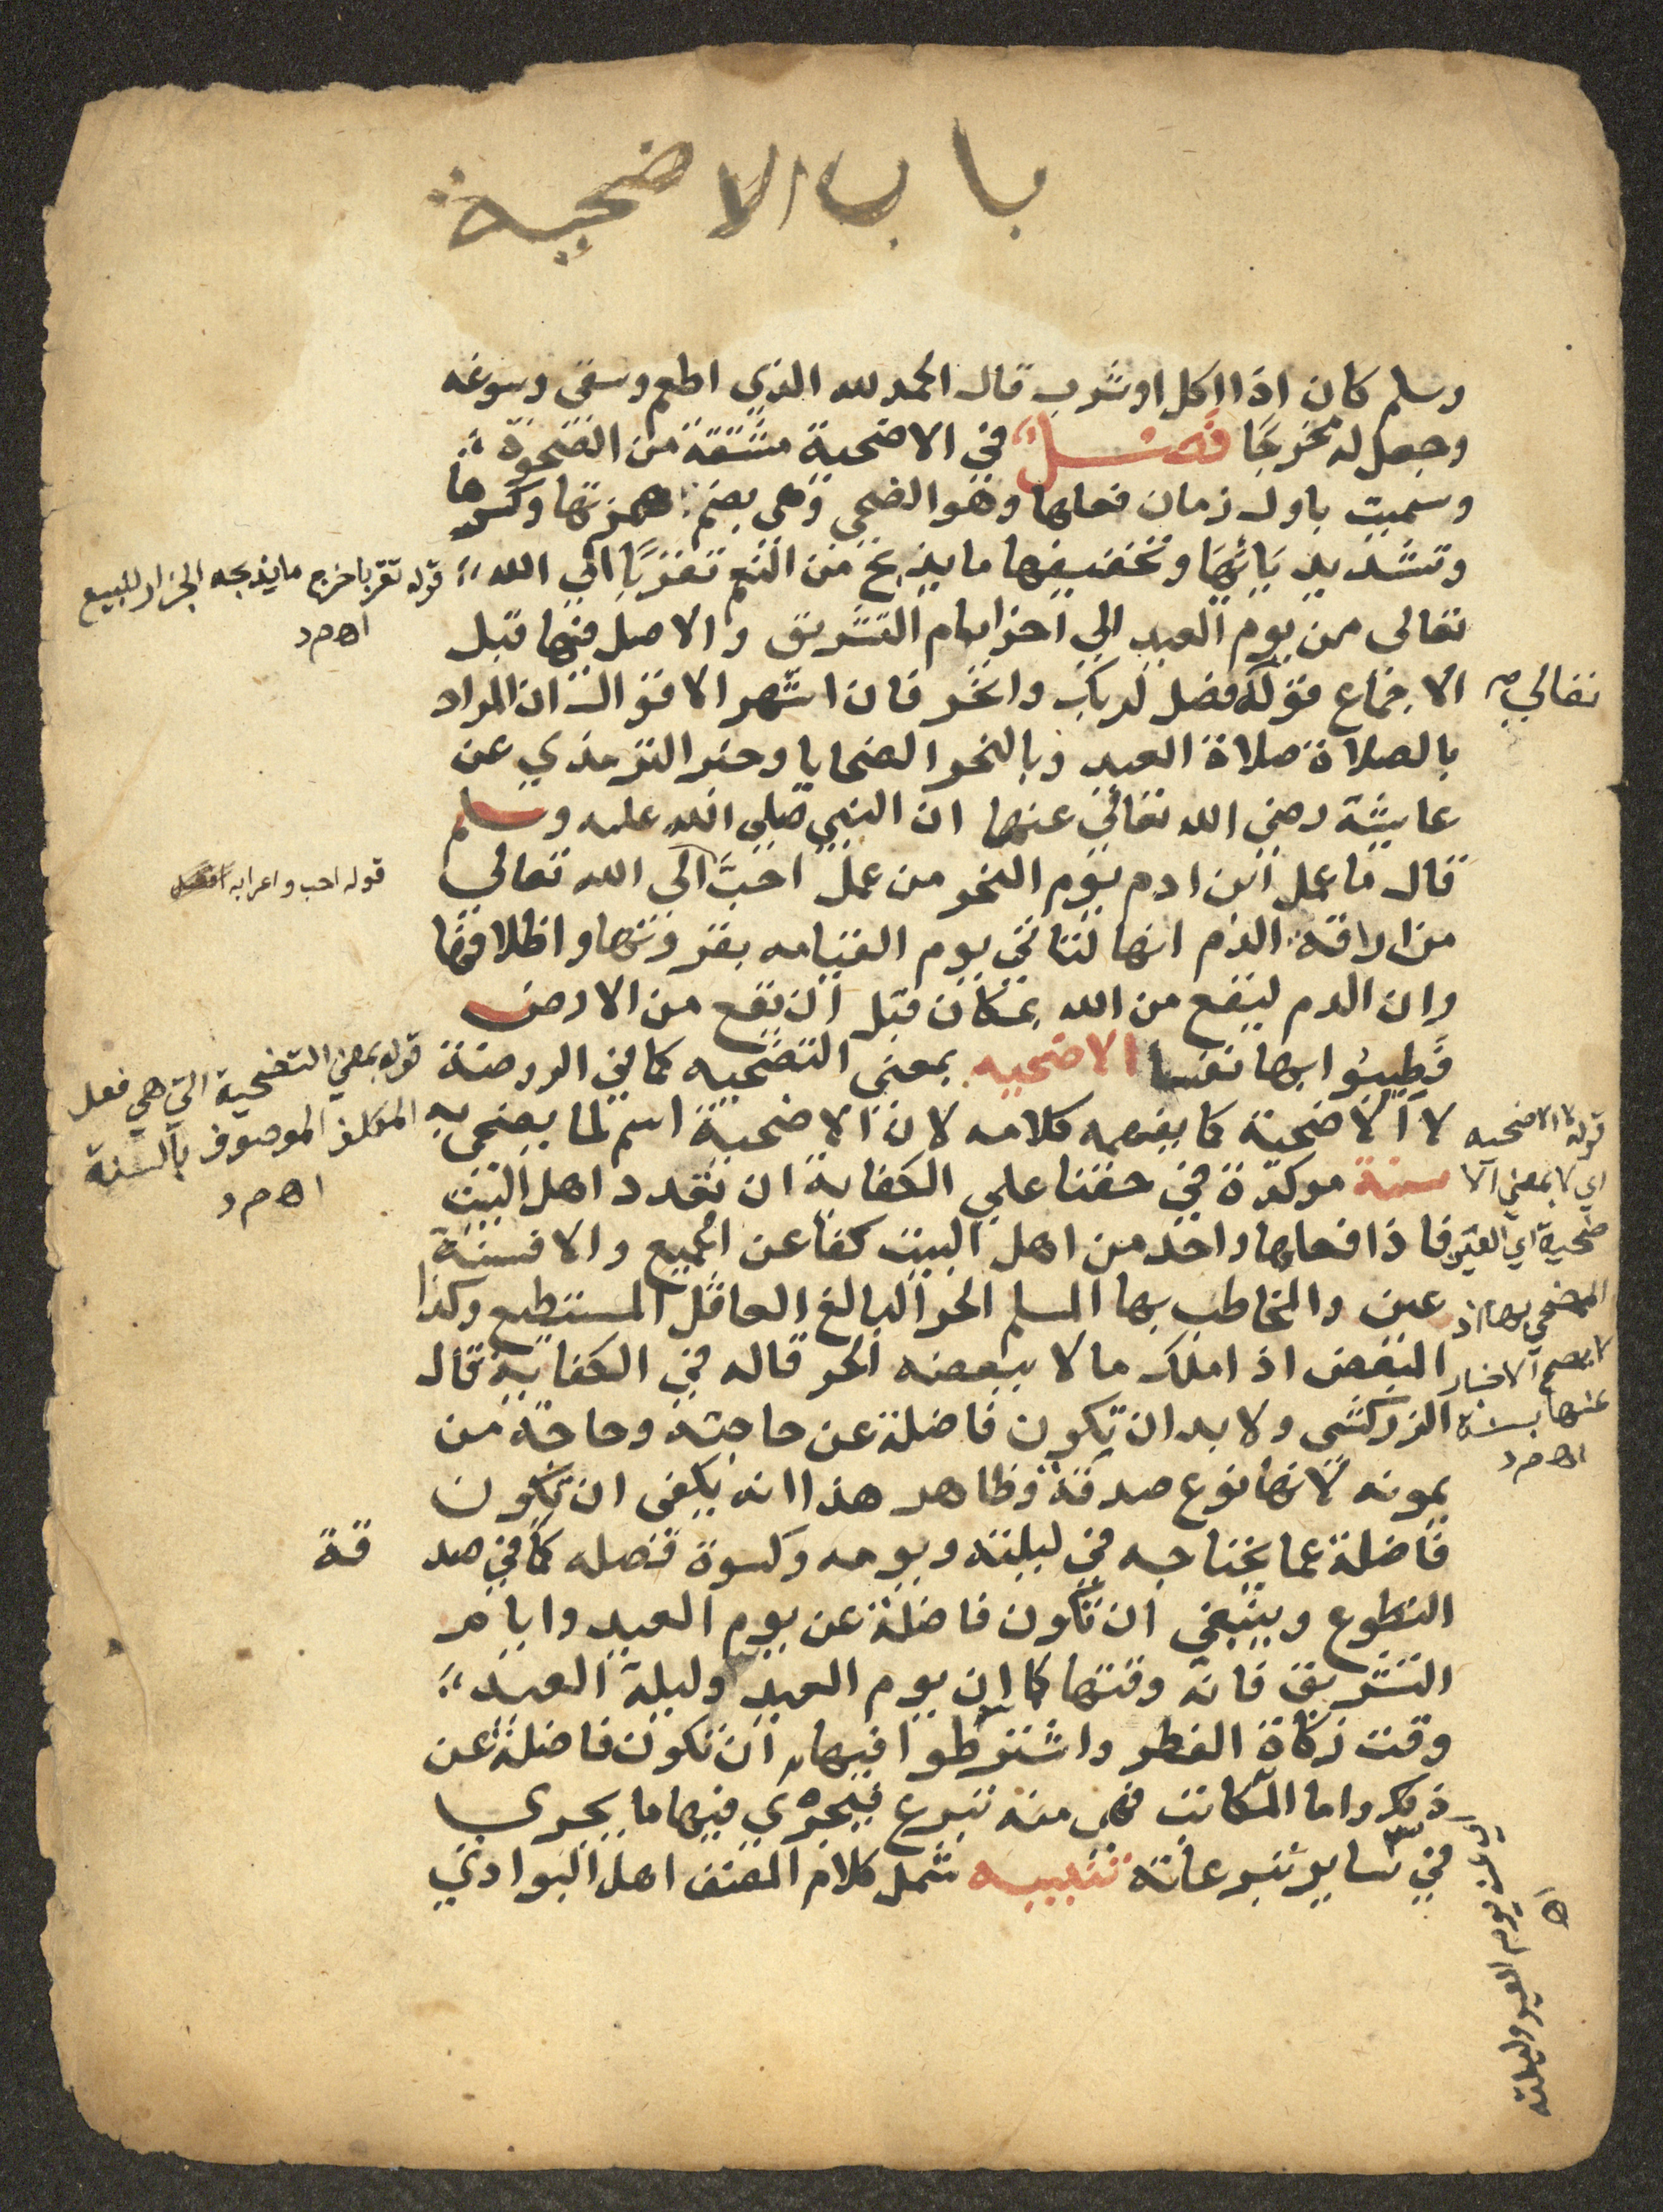 باب الاضحية
وسلم كان اذا اكل او شرب قال الحمد لله الذي اطعم وسقى وسوغه
وجعل له مخرجا فصل في الاضحية مشتقة من الضحوة
وسميت باول زمان فعلها وهو الضحي وهي بضم همزتها وكسرها
وتشديد يائها وتخفيفها ما يذبح من النعم تقربًا الي الله
قوله تقربا خرج ما يذبحه الجزار للبيع
اهـ م د
تعالى من يوم العيد الي اخر ايام التشريق والاصل فيها قبل
الاجماع قوله فصل لربك وانحر فان اشهر الاقوال ان المراد
تعالي صح
بالصلاة صلاة العيد وبالنحر الضحايا وخبر الترمذي عن
عايشة رضي الله تعالي عنها ان النبي صلي الله عليه وسلم
قال ما عمل ابن ادم يوم النحر من عمل احبَّ الى الله تعالي
قوله احب واعرابه
من اراقة الدم انها لتاتي يوم القيامه بقرونها واظلافها
وان الدم ليقع من الله بمكان قبل ان يقع من الارض
فطيبوا بها نفسا الاضحيه بمعنى التضحيه كما في الروضة
قوله بمعني التضحية التي هي فعل
المكلف الموصوف بالسنة
اهـ م د
لا الاضحية كما يفهمه كلامه لان الاضحية اسم لما يضحى به
سنة موكدة في حقنا علي الكفاية ان تعدد اهل البيت
فاذا فعلها واحد من اهل البيت كفا عن الجميع والا فسنة
عين والمخاطب بها المسلم الحر البالغ العاقل المستطيع وكذا
المبعض اذا ملك مالا ببعضه الحر قاله في الكفاية قال
الزركشي ولا بد ان تكون فاضلة عن حاجته وحاجة من
قوله لا الاضحيه
اي لا بمعني الا
ضحية اي العين
المضحي بها اذ
لا يصح الاخبار
عنها بسنة
اهـ م د
يمونه لانها نوع صدقة وظاهر هذا انه يكفي ان تكون
فاضلة عما يحتاجه في ليلته ويومه وكسوة فصله كما في صد قة
التطوع وينبغي ان تكون فاضلة عن يوم العيد وايام
التشريق فانه وقتها كما ان يوم العيد وليلة العيد
وقت زكاة الفطر واشترطوا فيها ان تكون فاضلة عن
ذلك واما المكاتب فهي منه تبرع فيجري فيها ما يجري
في ساير تبرعاته تنبيه شمل كلام المصنف اهل البوادي
يوم العيد وليلته
اهـ